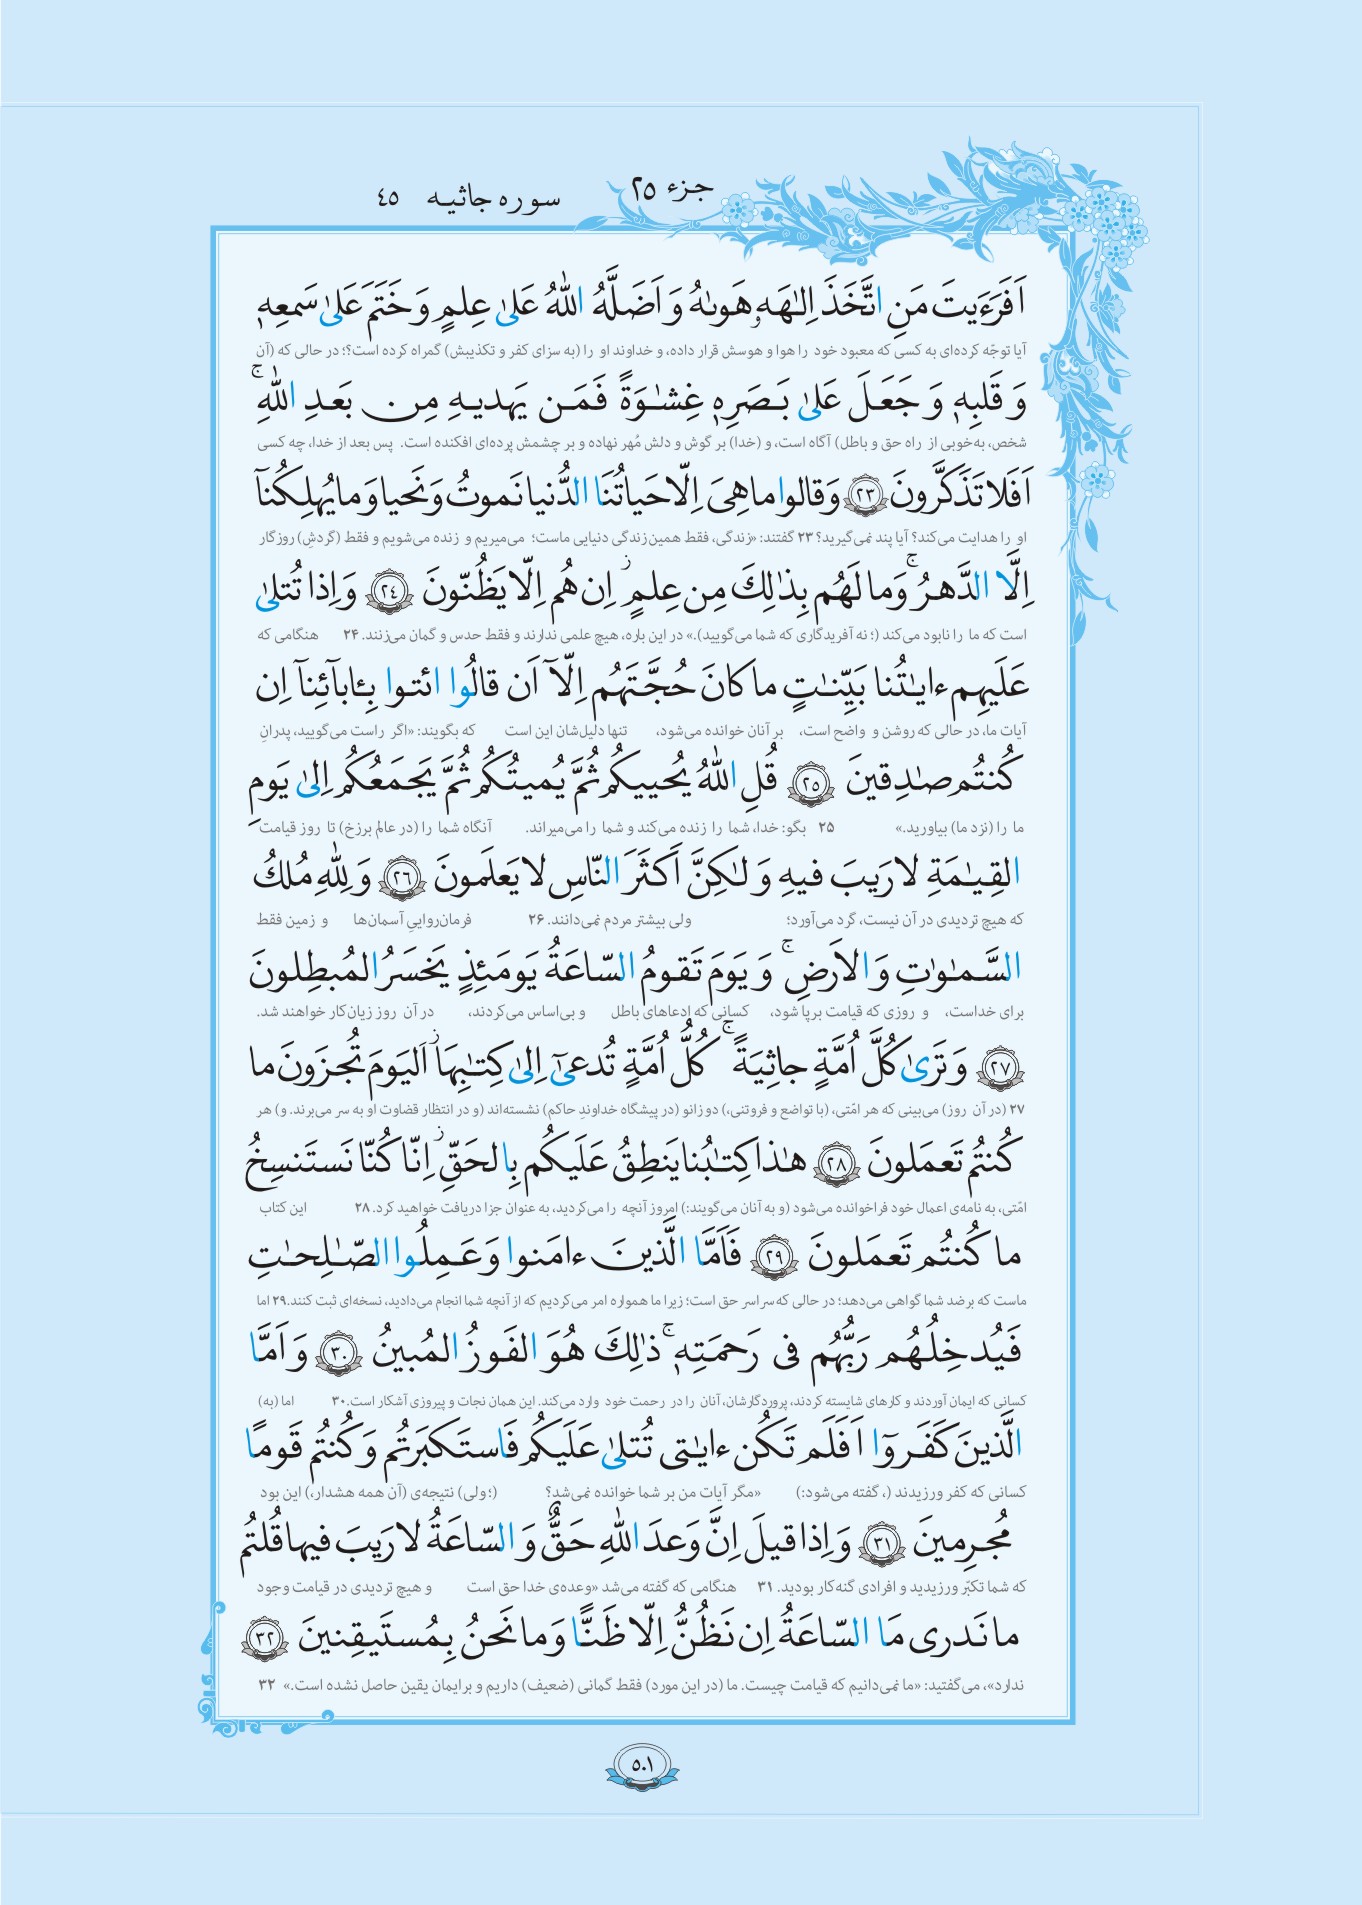 جزء ۲۵
سوره جاثیه ٤٥
اَفَرَءَیتَ مَنِ اتَّخَذَ اِلٰهَهٗ هَوىٰهُ وَ اَضَلَّهُ اللهُ عَلىٰ عِلمٍ وَ خَتَمَ عَلىٰ سَمعِهٖ
آیا توجّه کرده‌ای به کسی که معبود خود را هوا و هوسش قرار داده، و خداوند او را (به سزای کفر و تکذیبش) گمراه کرده است؟؛ در حالی که (آن
وَ قَلبِهٖ وَ جَعَلَ عَلىٰ بَصَرِهٖ غِشٰوَةً فَمَن یَهدیهِ مِن بَعدِ اللهِ ۚ
شخص، به‌خوبی از راه حق و باطل) آگاه است، و (خدا) بر گوش و دلش مُهر نهاده و بر چشمش پرده‌ای افکنده است. پس بعد از خدا، چه کسی
اَفَلا تَذَكَّرونَ ﴿٢٣﴾ وَقالوا ما هِیَ اِلّا حَیاتُنَا الدُّنیا نَموتُ وَ نَحیا وَ ما یُهلِكُنآ
او را هدایت می‌کند؟ آیا پند نمی‌گیرید؟ ۲۳ گفتند: «زندگی، فقط همین زندگی دنیایی ماست؛ می‌میریم و زنده می‌شویم و فقط (گردشِ) روزگار
اِلَّا الدَّهرُ ۚ وَ ما لَهُم بِذٰلِكَ مِن عِلمٍ ۖ اِن هُم اِلّا یَظُنّونَ ﴿٢٤﴾ وَ اِذا تُتلىٰ
است که ما را نابود می‌کند (؛ نه آفریدگاری که شما می‌گویید).» در این باره، هیچ علمی ندارند و فقط حدس و گمان می‌زنند. ۲۴ هنگامی که
عَلَیهِم ءایٰتُنا بَیِّنٰتٍ ما كانَ حُجَّتَهُم اِلّآ اَن قالُوا ائتوا بِـٔابآئِنآ اِن
آیات ما، در حالی که روشن و واضح است، بر آنان خوانده می‌شود، تنها دلیل‌شان این است که بگویند: «اگر راست می‌گویید، پدرانِ
كُنتُم صٰدِقینَ ﴿٢٥﴾ قُلِ اللهُ یُحییكُم ثُمَّ یُمیتُكُم ثُمَّ یَجمَعُكُم اِلىٰ یَومِ
ما را (نزد ما) بیاورید.» ۲۵ بگو: خدا، شما را زنده می‌کند و شما را می‌میراند. آنگاه شما را (در عالم برزخ) تا روز قیامت
القِیٰمَةِ لا رَیبَ فیهِ وَ لٰكِنَّ اَكثَرَ النّاسِ لا یَعلَمونَ ﴿٢٦﴾ وَ لِلّٰهِ مُلكُ
که هیچ تردیدی در آن نیست، گرد می‌آورد؛ ولی بیشتر مردم نمی‌دانند. ۲۶ فرمان‌رواییِ آسمان‌ها و زمین فقط
السَّمٰوٰتِ وَ الاَرضِ ۚ وَ یَومَ تَقومُ السّاعَةُ یَومَئِذٍ یَخسَرُ المُبطِلونَ
برای خداست، و روزی که قیامت برپا شود، کسانی که ادعاهای باطل و بی‌اساس می‌کردند، در آن روز زیان‌کار خواهند شد.
﴿٢٧﴾ وَ تَرىٰ كُلَّ اُمَّةٍ جاثِیَةً ۚ كُلُّ اُمَّةٍ تُدعىٰٓ اِلىٰ كِتٰبِهَا ۖ الیَومَ تُجزَونَ ما
۲۷ (در آن روز) می‌بینی که هر امّتی، (با تواضع و فروتنی،) دو زانو (در پیشگاه خداوندِ حاکم) نشسته‌اند (و در انتظار قضاوت او به سر می‌برند. و) هر
كُنتُم تَعمَلونَ ﴿٢٨﴾ هٰذا كِتٰبُنا یَنطِقُ عَلَیكُم بِالحَقِّ ۖ اِنّا كُنّا نَستَنسِخُ
امّتی، به نامه‌ی اعمال خود فراخوانده می‌شود (و به آنان می‌گویند:) امروز آنچه را می‌کردید، به عنوان جزا دریافت خواهید کرد. ۲۸ این کتاب
ما كُنتُم تَعمَلونَ ﴿٢٩﴾ فَاَمَّا الَّذینَ ءامَنوا وَ عَمِلُوا الصّٰلِحٰتِ
ماست که برضد شما گواهی می‌دهد؛ در حالی که سراسر حق است؛ زیرا ما همواره امر می‌کردیم که از آنچه شما انجام می‌دادید، نسخه‌ای ثبت کنند. ۲۹ اما
فَیُدخِلُهُم رَبُّهُم فی رَحمَتِهٖ ۚ ذٰلِكَ هُوَ الفَوزُ المُبینُ ﴿٣٠﴾ وَ اَمَّا
کسانی که ایمان آوردند و کارهای شایسته کردند، پروردگارشان، آنان را در رحمت خود وارد می‌کند. این همان نجات و پیروزی آشکار است. ۳۰ اما (به)
الَّذینَ كَفَروٓا اَفَلَم تَكُن ءایٰتی تُتلىٰ عَلَیكُم فَاستَكبَرتُم وَ كُنتُم قَومًا
کسانی که کفر ورزیدند (، گفته می‌شود:) «مگر آیات من بر شما خوانده نمی‌شد؟ (؛ ولی) نتیجه‌ی (آن همه هشدار،) این بود
مُجرِمینَ ﴿٣١﴾ وَ اِذا قیلَ اِنَّ وَعدَ اللهِ حَقٌّ وَ السّاعَةُ لا رَیبَ فیها قُلتُم
که شما تکبّر ورزیدید و افرادی گنه‌کار بودید. ۳۱ هنگامی که گفته می‌شد «وعده‌ی خدا حق است و هیچ تردیدی در قیامت وجود
ما نَدری مَا السّاعَةُ اِن نَظُنُّ اِلّا ظَنًّا وَ ما نَحنُ بِمُستَیقِنینَ ﴿٣٢﴾
ندارد»، می‌گفتید: «ما نمی‌دانیم که قیامت چیست. ما (در این مورد) فقط گمانی (ضعیف) داریم و برایمان یقین حاصل نشده است.» ۳۲
٥٠١